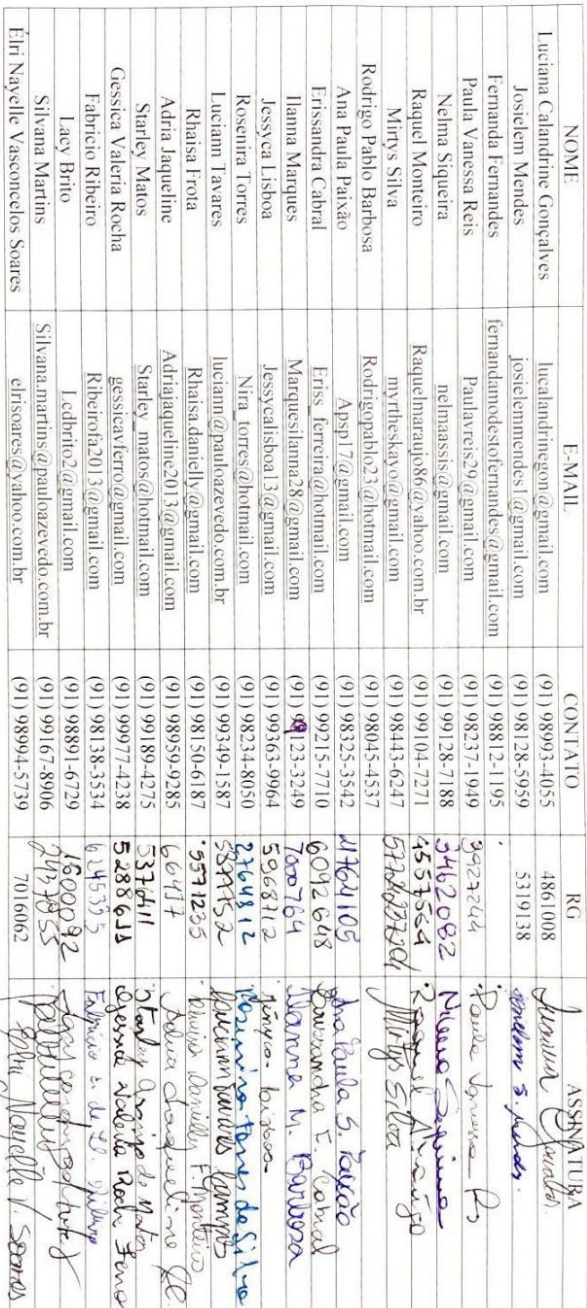 NOME E-MAIL CONTATO RG ASSINATURA
Luciana Calandrine Gonçalves lucalandrinegon@gmail.com (91) 98993-4055 4861008
Josielem Mendes josielenmendes1@gmail.com (91) 98128-5959 5319138
Fernanda Fernandes fernandamodestofernandes@gmail.com (91) 98812-1195
Paula Vanessa Reis Paulavreis29@gmail.com (91) 98237-1949 3927244 Paula Vanessa Rs
Nelma Siqueira nelmaassis@gmail.com (91) 99128-7188 3462082
Raquel Monteiro Raquelmaraujo86@yahoo.com.br (91) 99104-7271 4557564 Raquel Araújo
Mirtys Silva myrtheskayo@gmail.com (91) 98443-6247 Mirtys Silva
Rodrigo Pablo Barbosa Rodrigopablo23@hotmail.com (91) 98045-4537
Ana Paula Paixão Apspl7@gmail.com (91) 98325-3542 4764105 Ana Paula S. Paixão
Erissandra Cabral Eriss_ferreira@hotmail.com (91) 99215-7710 6092648 Erissandra F. Cabral
Ilanna Marques Marquesilanna28@gmail.com (91) 99123-3249 7000764 Ilanna M. Barbosa
Jessyca Lisboa Jessycalisboa13@gmail.com (91) 99363-9964 5968712
Rosenira Torres Nira_torres@hotmail.com (91) 98234-8050 2764812 Rosenira Torres da Silva
Luciann Tavares luciann@pauloazevedo.com.br (91) 99349-1587 Luciann Tavares Campos
Rhaisa Frota Rhaisa.danielly@gmail.com (91) 98150-6187 5571235 Danielly F. Monteiro
Adria Jaqueline Adriajaqueline2013@gmail.com (91) 98959-9285 Adria Jaqueline
Starley Matos Starley_matos@hotmail.com (91) 99189-4275 Starley Araújo de Matos
Gessica Valeria Rocha gessicavferro@gmail.com (91) 99977-4238 5288611 Gessica Valeria Rocha Ferro
Fabricio Ribeiro Ribeirofa2013@gmail.com (91) 98138-3534 6245335
Lacy Brito Lcdbrito2@gmail.com (91) 98891-6729 1600092
Silvana Martins Silvana.martins@pauloazevedo.com.br (91) 99167-8906
Élri Nayelle Vasconcelos Soares elrisoares@yahoo.com.br (91) 98994-5739 7016062 Nayelle V. Soares